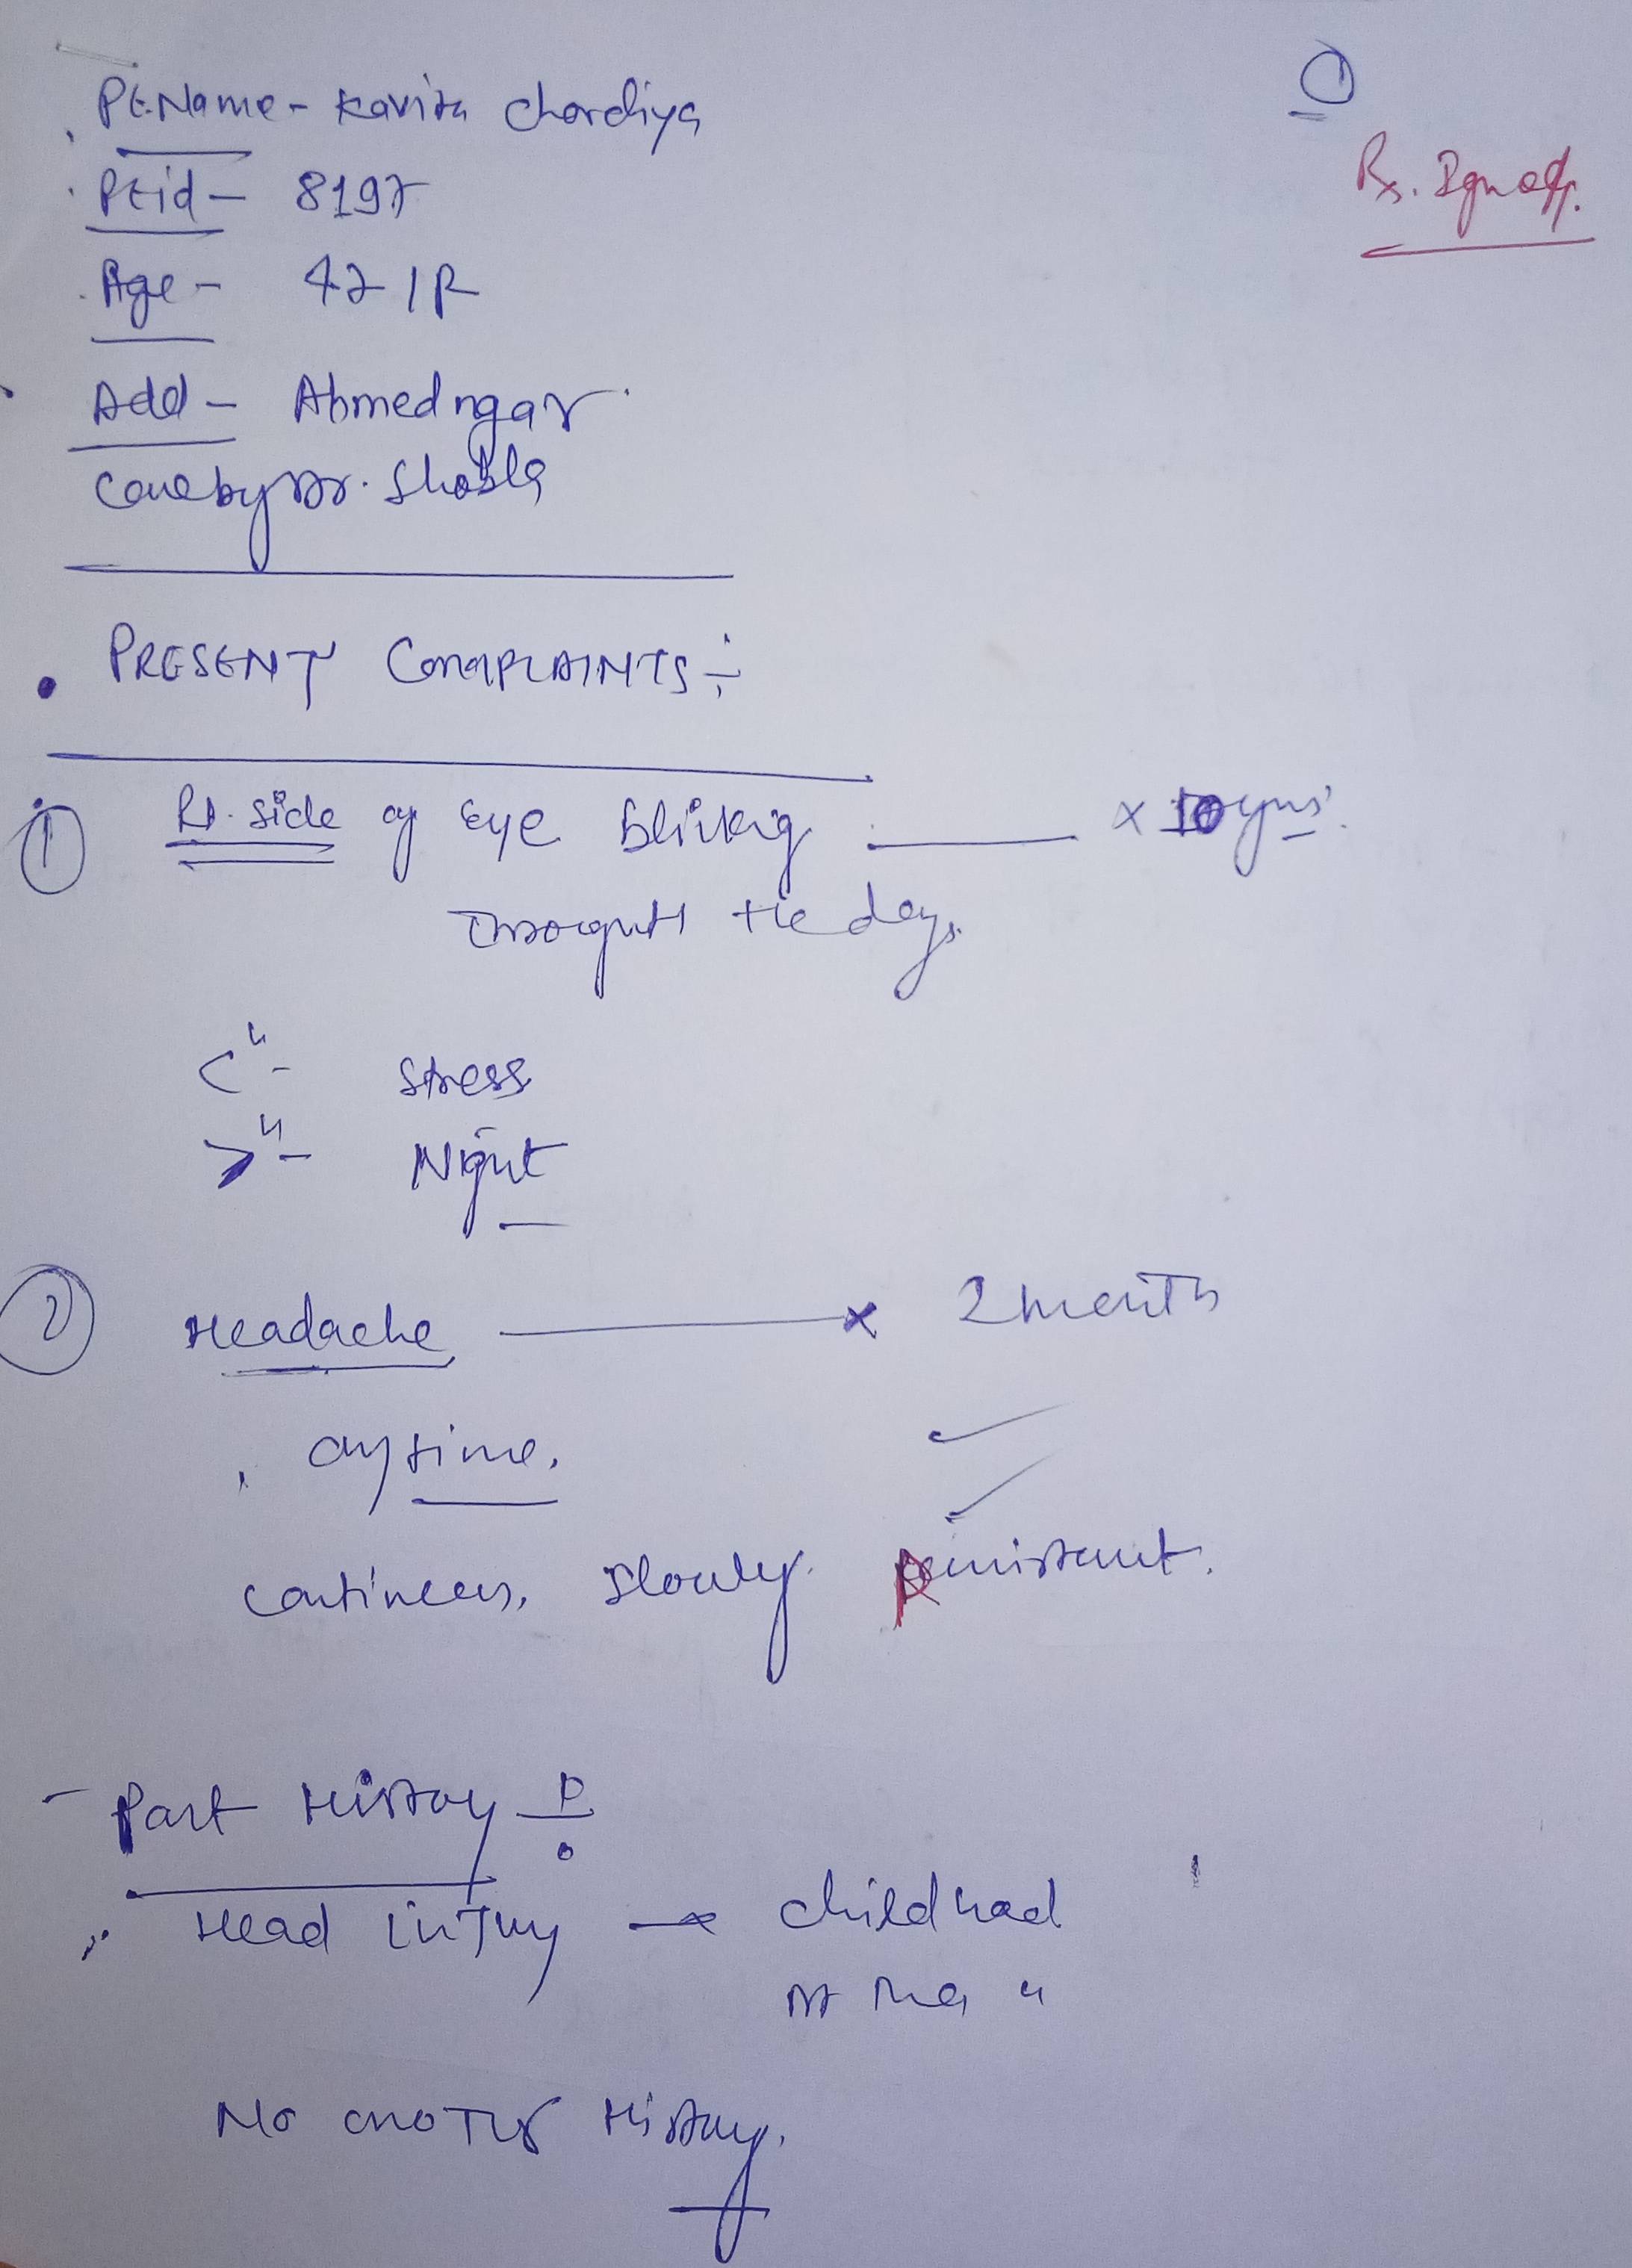 ①
Rx. Ignat.
Pt. Name - Kavita Chordiya
Pt id - 8197
Age -
Add - Ahmedngar
Case by Dr. Shobha
PRESENT COMPLAINTS :-
① Rt. side of Eye Blinking x 10 yrs.
Through the day.
<" - Stress
>" - Night
② Headache x 2 month
any time.
continues, slowly. persistant.
Past History :-
Head injury → childhood
No another History.